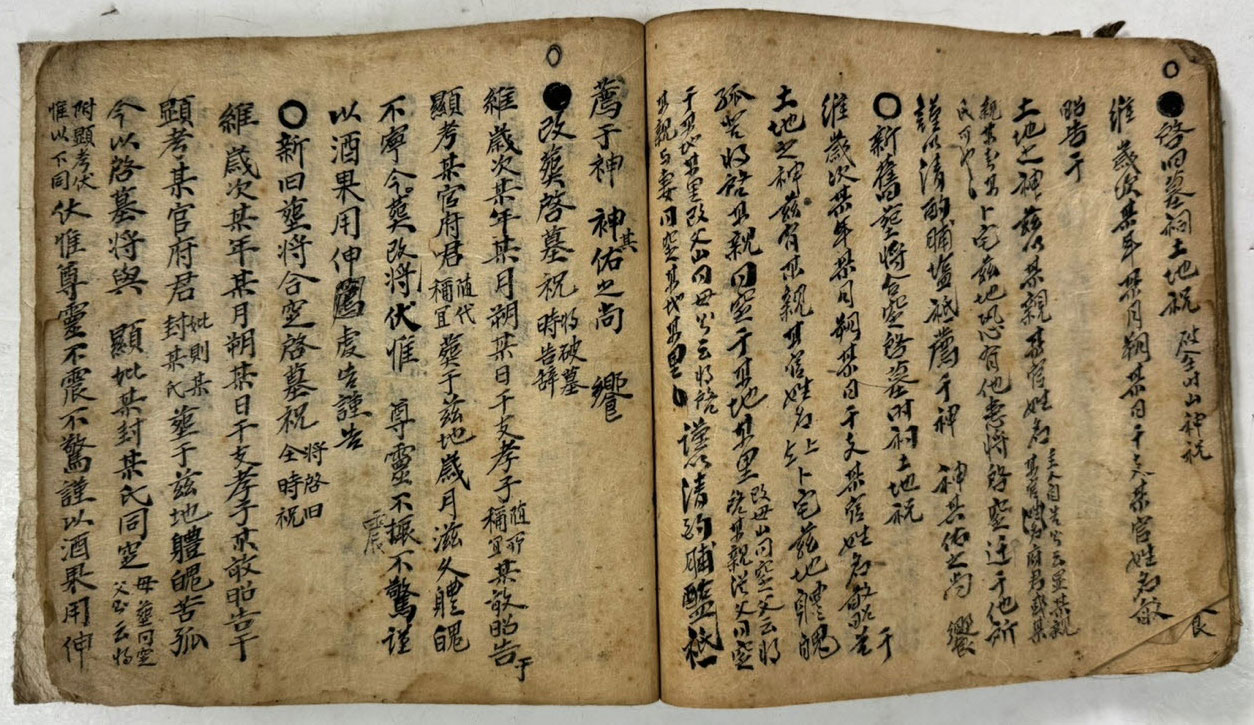 啓旧墓祠土地祝
維 歲次某年某月朔某日干支某官姓名敢
昭告于
土地之神玆以某親某官姓名
親某 卜宅玆地恐有他患將啓窆迁于他所
謹以淸酌脯塩祗薦于神 神其佑之尚 饗
新舊葬將合窆啓墓時祠土地祝
維 歲次某年某月朔某日干支某官姓名敢昭告于
土地之神玆有某親某官姓名上卜宅玆地體魄
孤苦將啓某親同窆于某地某里
于某地某里改父山同母 云將啓
某親与妻同窆某地某里 謹以淸酌脯醢祗
薦于神 神其佑之尚 饗
改葬啓墓祝 將破墓時告辞
維歲次某年某月朔某日干支孝子 随所称宜 某敢昭告于
顯考某官府君 随代称宜 葬于玆地歲月滋久體魄
不寧今葬改將伏惟 尊靈不振不驚謹
震
以酒果用伸虔告謹告
新旧葬將合窆啓墓祝 將啓旧仝時祝
維 歲次某年某月朔某日干支孝子某敢昭告于
顯考某官府君 妣則某封某氏 葬于玆地體魄苦孤
今以啓墓將與 顯妣某封某氏同窆 母葬同窆父 云將
附顯考伏惟以下同 伏惟尊靈不震不驚謹以酒果用伸